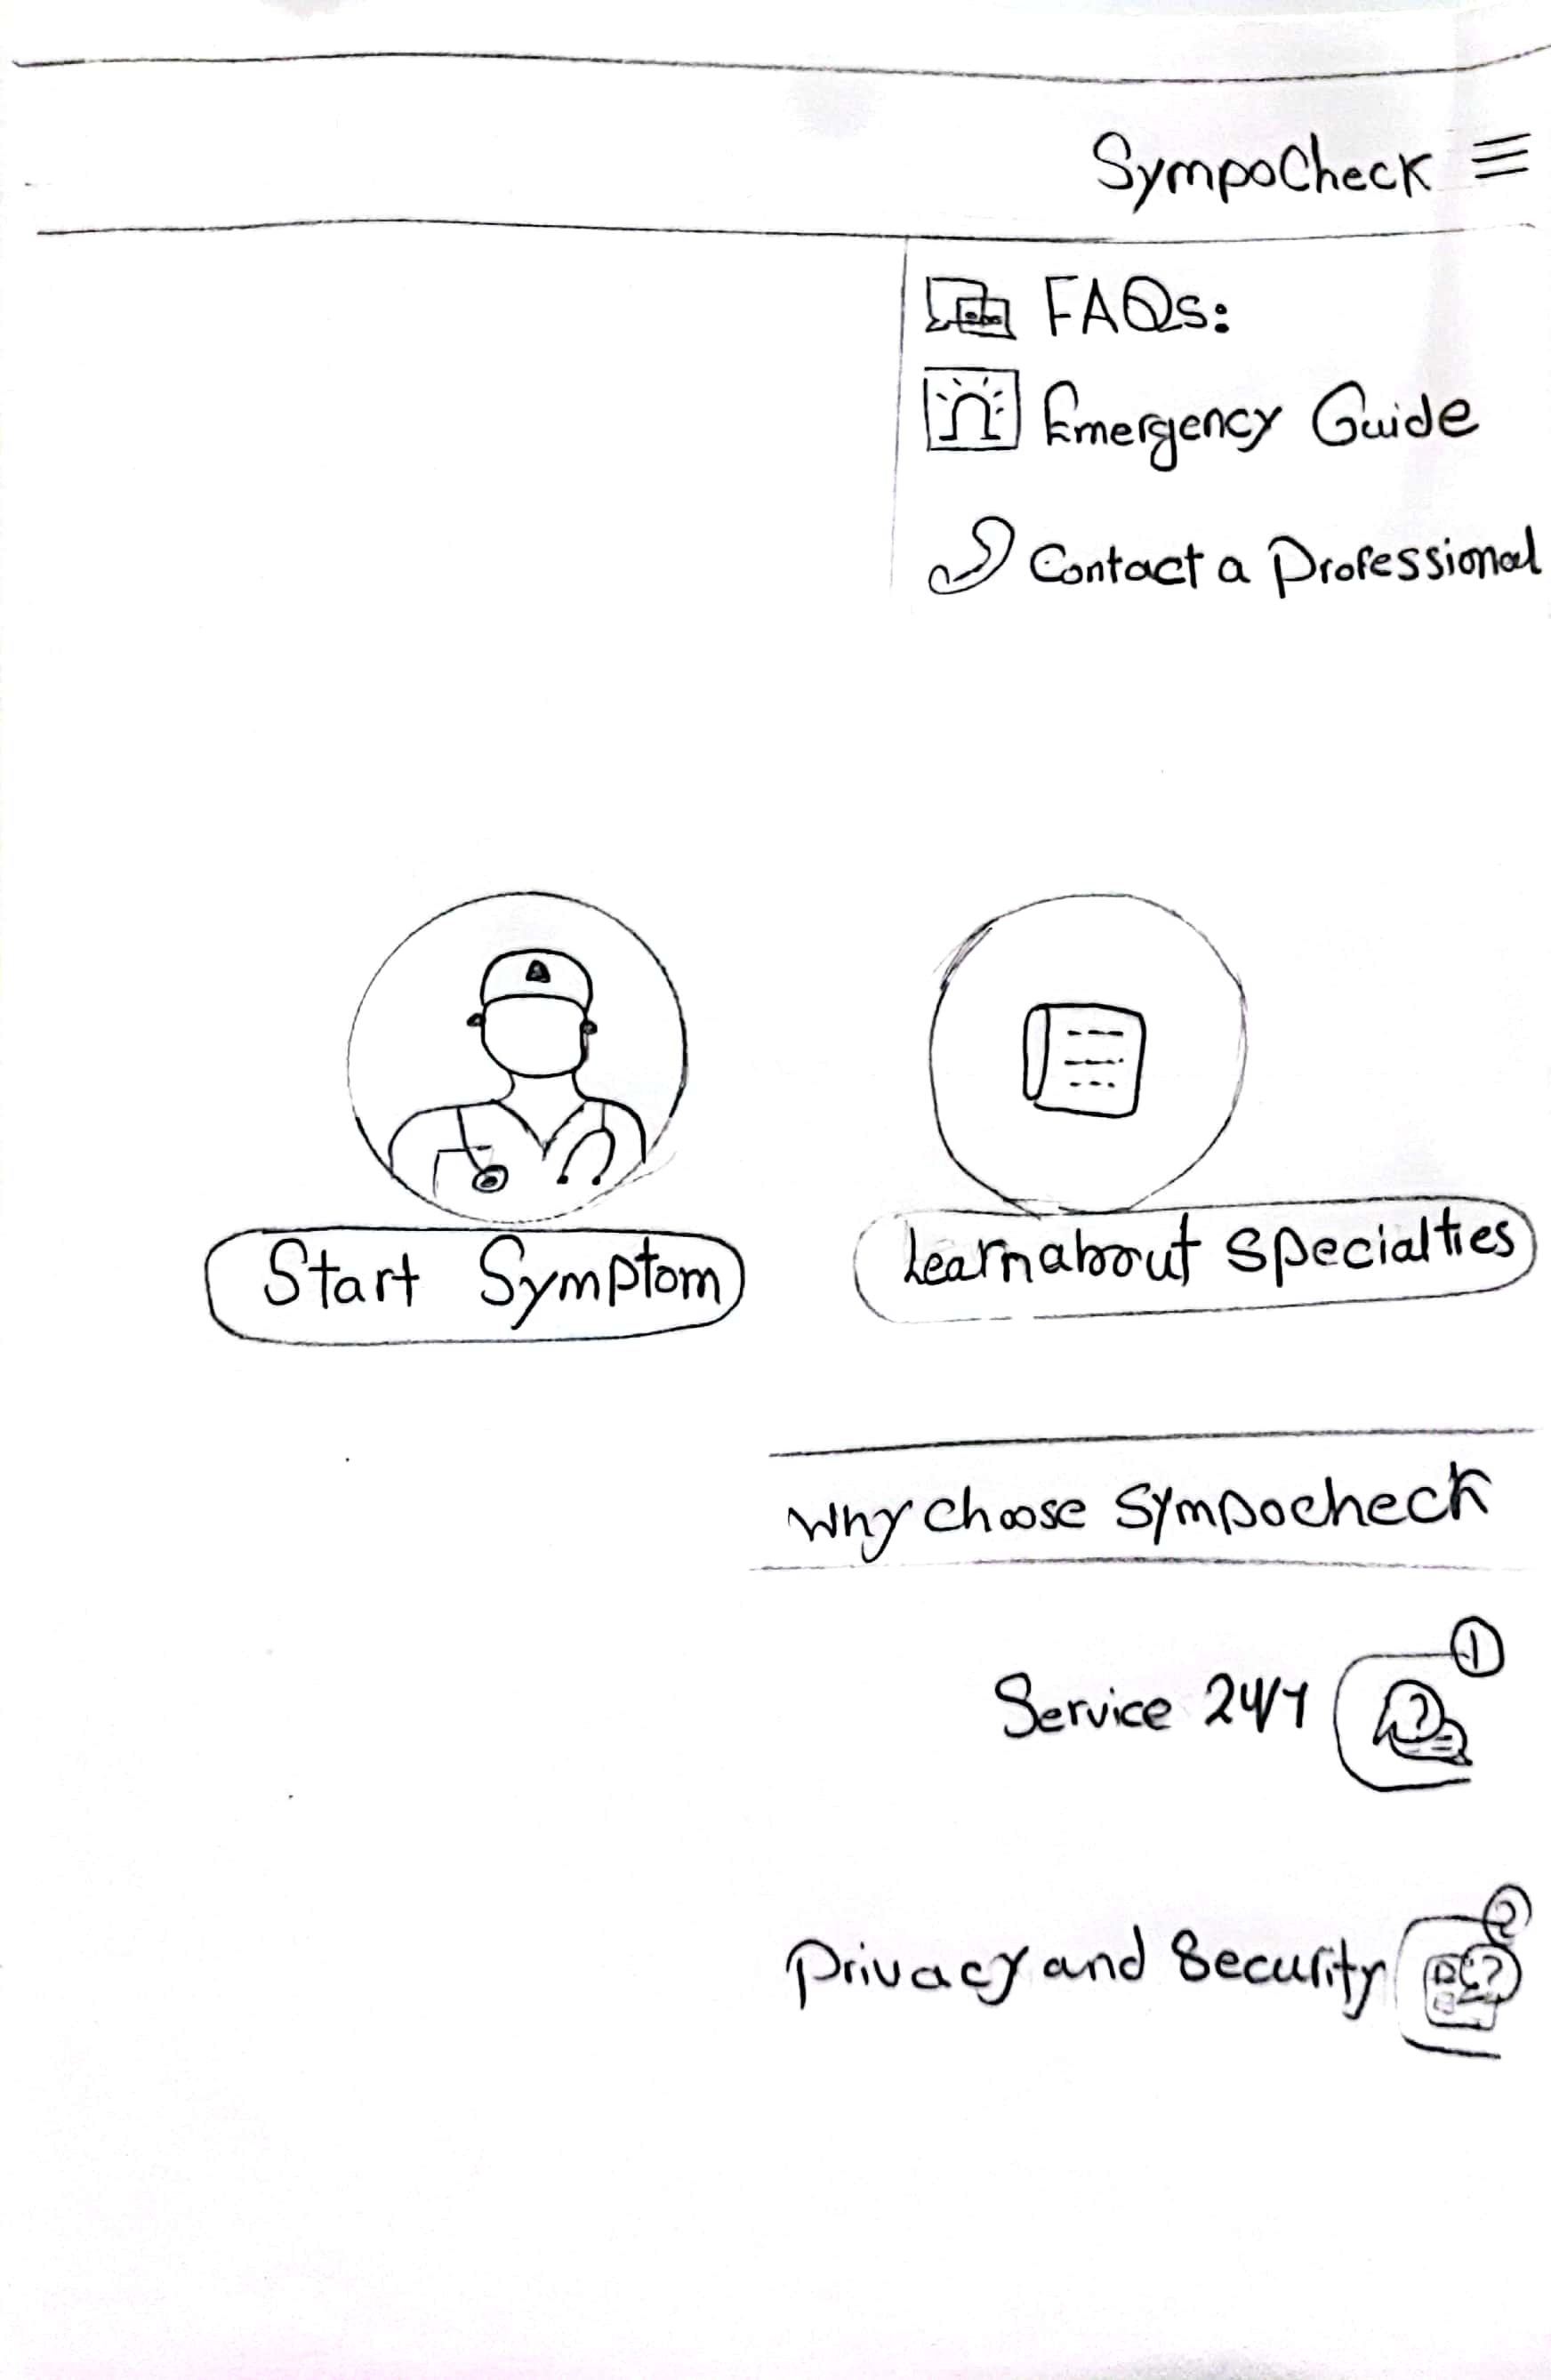 SympoCheck
FAQs:
Emergency Guide
Contact a Professional
Start Symptom
Learn about specialties
Why choose Sympocheck
1
Service 24/7
2
Privacy and Security